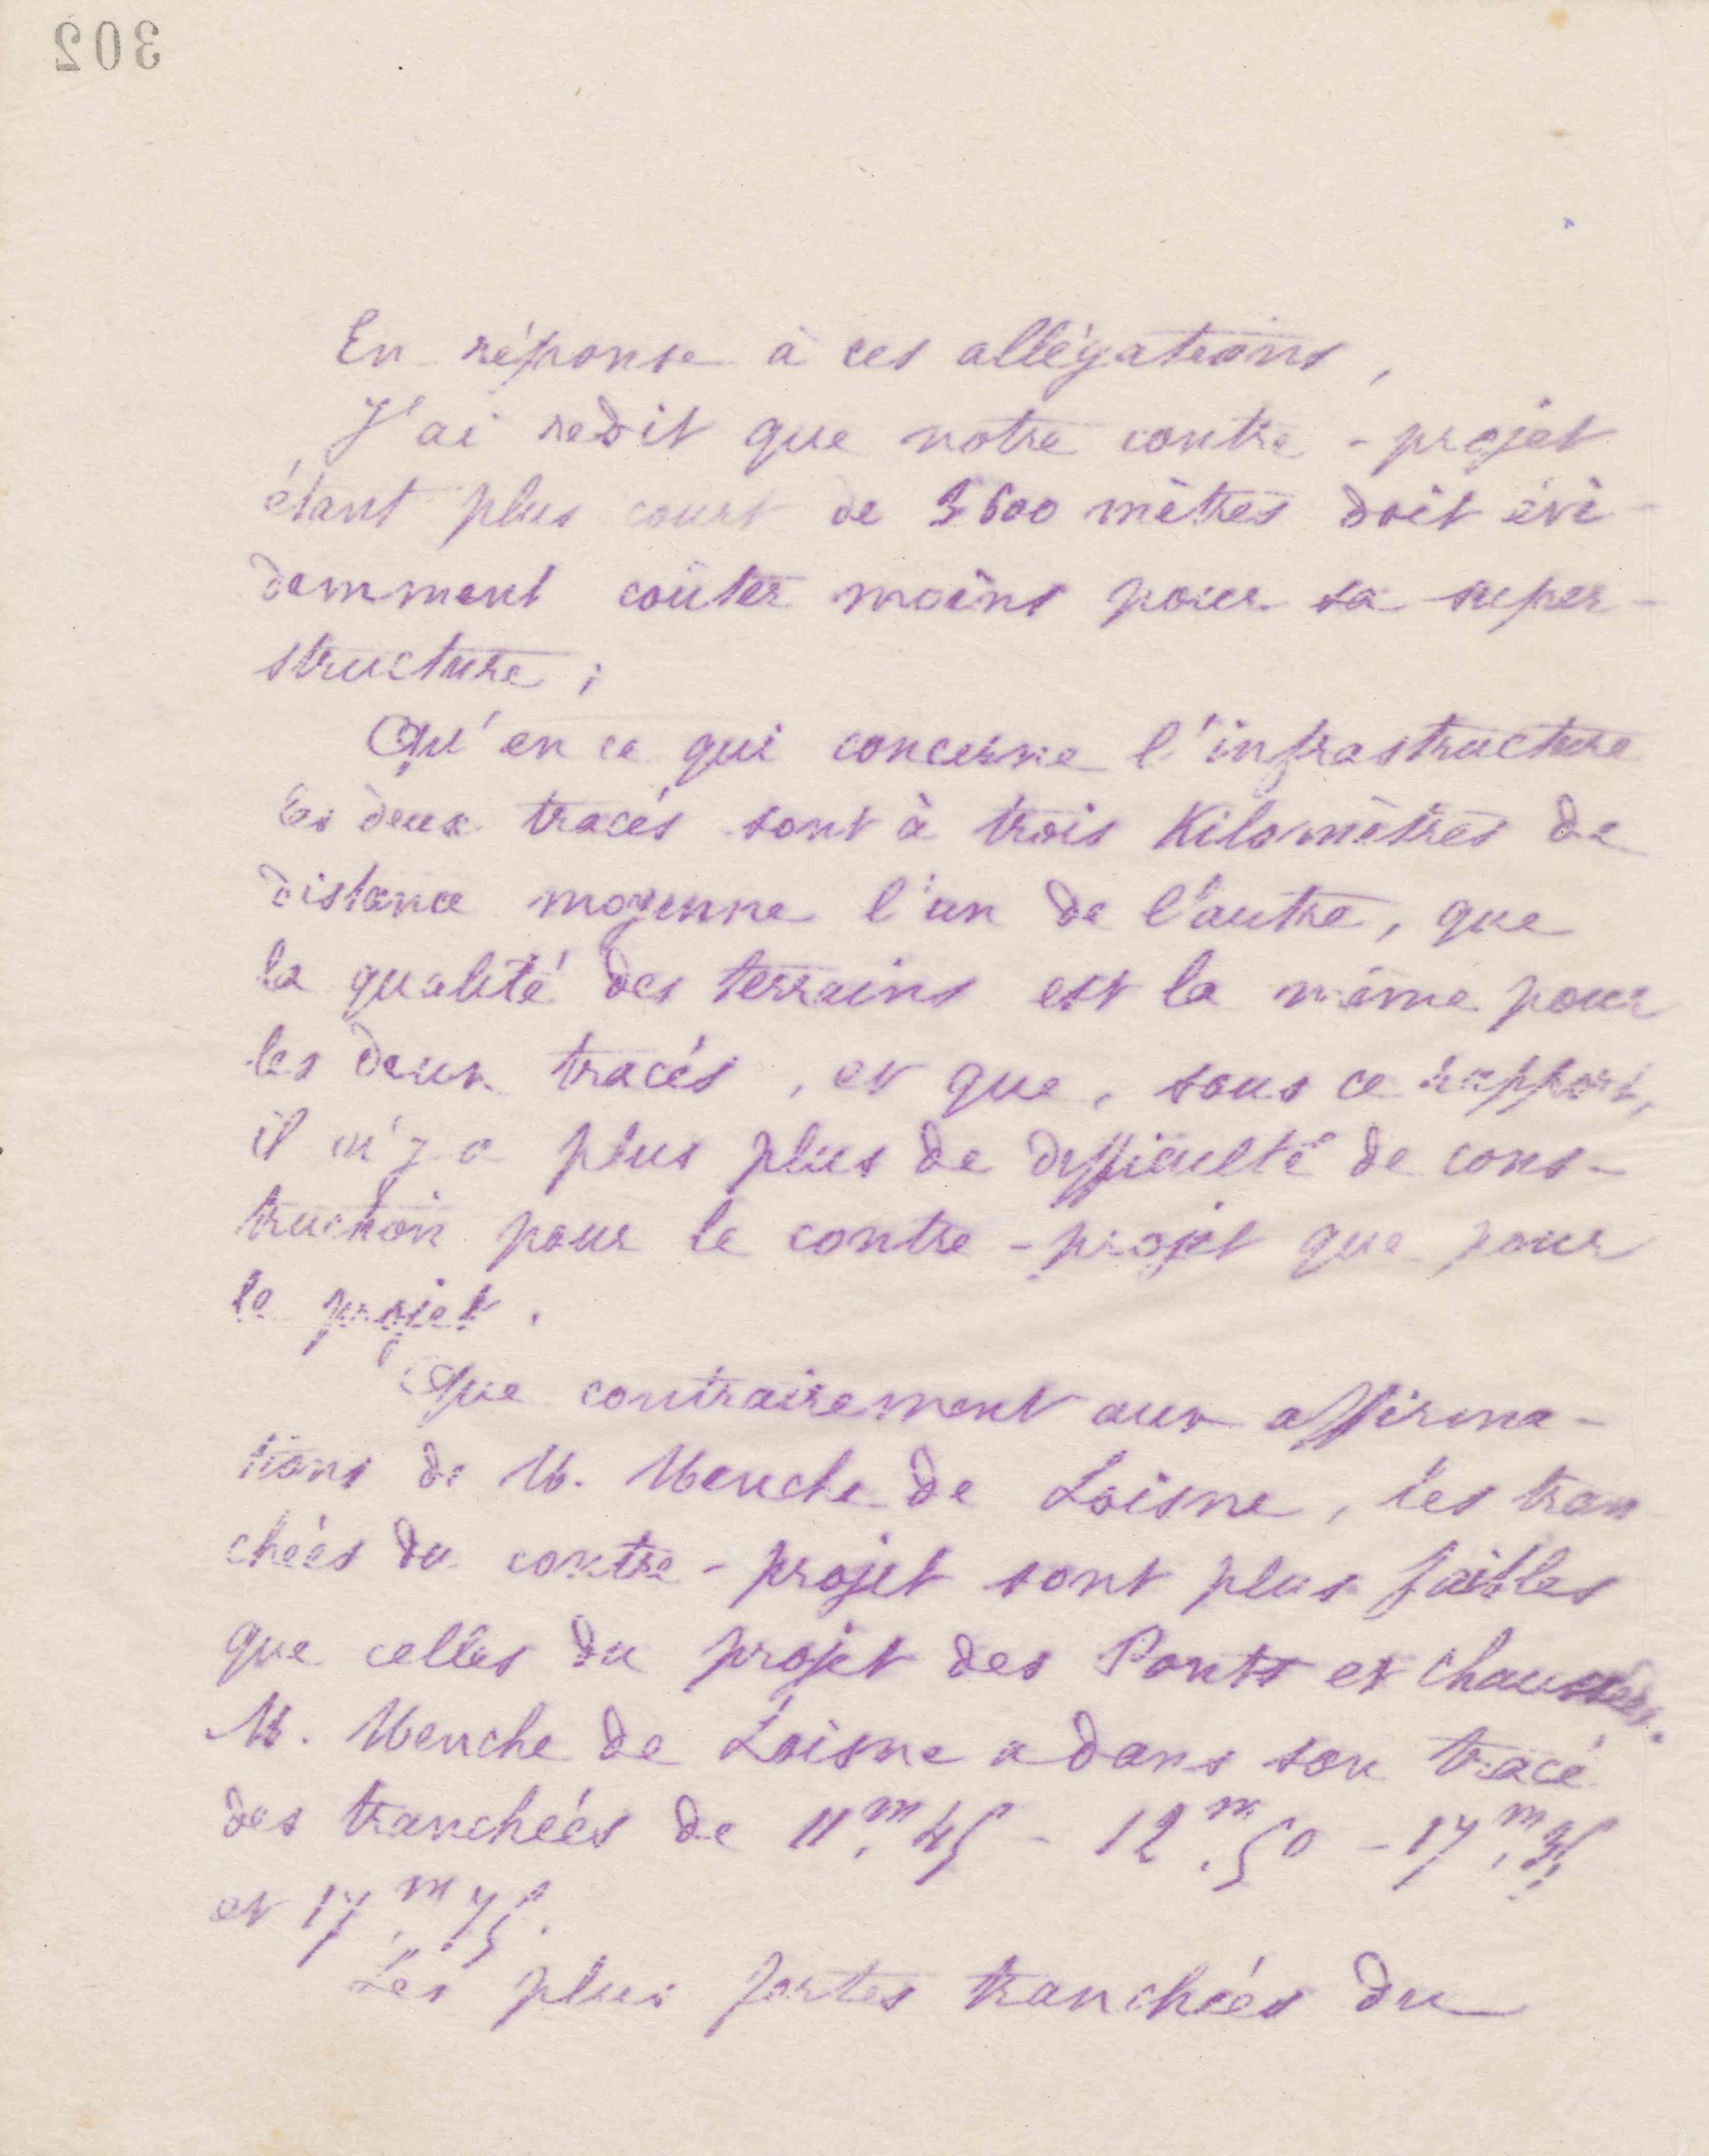 302
En réponse à ces allégations,
J'ai redit que notre contre-projet
étant plus court de 3600 mètres doit évi-
demment coûter moins pour sa super-
structure;
Qu'en ce qui concerne l'infrastructure
les deux tracés sont à trois Kilomètres de
distance moyenne l'un de l'autre, que
la qualité des terrains est la même pour
les deux tracés, et que, sous ce rapport,
il n'y a plus plus de difficulté de cons-
truction pour le contre-projet que pour
le projet.
Que contrairement aux affirma-
tions de M. Menche de Loisne, les tran
chées du contre-projet sont plus faibles
que celles du projet des Ponts et chaussées.
M. Menche de Loisne a dans son tracé
des tranchées de 11m,45 - 12m,50 - 17m,35
et 17m,75.
Les plus fortes tranchées du